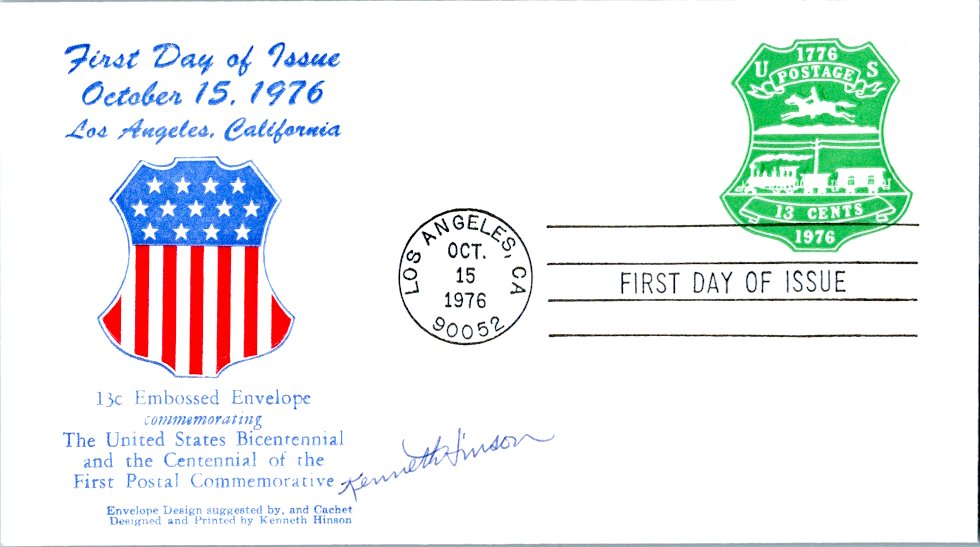 First Day of Issue
October 15, 1976
Los Angeles, California
13c Embossed Envelope
commemorating
The United States Bicentennial
and the Centennial of the
First Postal Commemorative
Envelope Design suggested by, and Cachet
Designed and Printed by Kenneth Hinson
Kenneth Hinson
LOS ANGELES, CA
OCT.
15
1976
90052
1776
U S
POSTAGE
13 CENTS
1976
FIRST DAY OF ISSUE